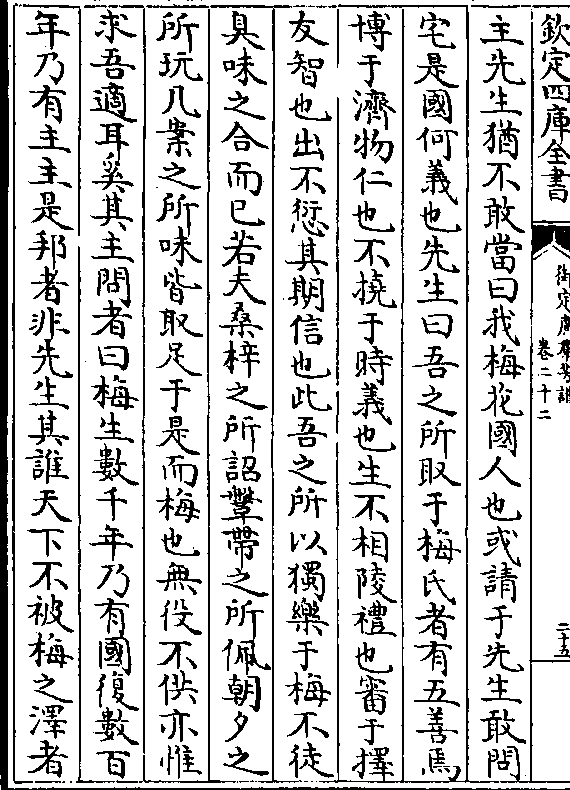 欽定四庫全書
御定廣羣芳譜
卷二十二
二十五
主先生猶不敢當曰我梅花國人也或請于先生敢問
宅是國何義也先生曰吾之所取于梅氏者有五善焉
博于濟物仁也不撓于時義也生不相陵禮也審于擇
友智也出不愆其期信也此吾之所以獨樂于梅不徒
臭味之合而已若夫桑梓之所詔鞶帶之所佩朝夕之
所玩几案之所味皆取足于是而梅也無役不供亦惟
求吾適耳奚其主問者曰梅生數千年乃有國復數百
年乃有主主是邦者非先生其誰天下不被梅之澤者